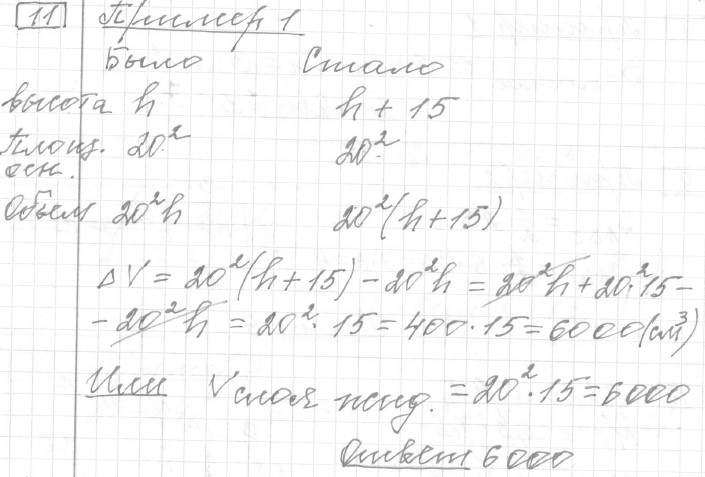 11 Пример 1
Было Стало
высота h h + 15
Площ. 20² 20²
осн.
Объем 20²h 20²(h+15)
ΔV = 20²(h+15) - 20²h = 20²h + 20²·15 -
- 20²h = 20²·15 = 400·15 = 6000 (см³)
Или V слоя жид. = 20²·15 = 6000
Ответ 6000